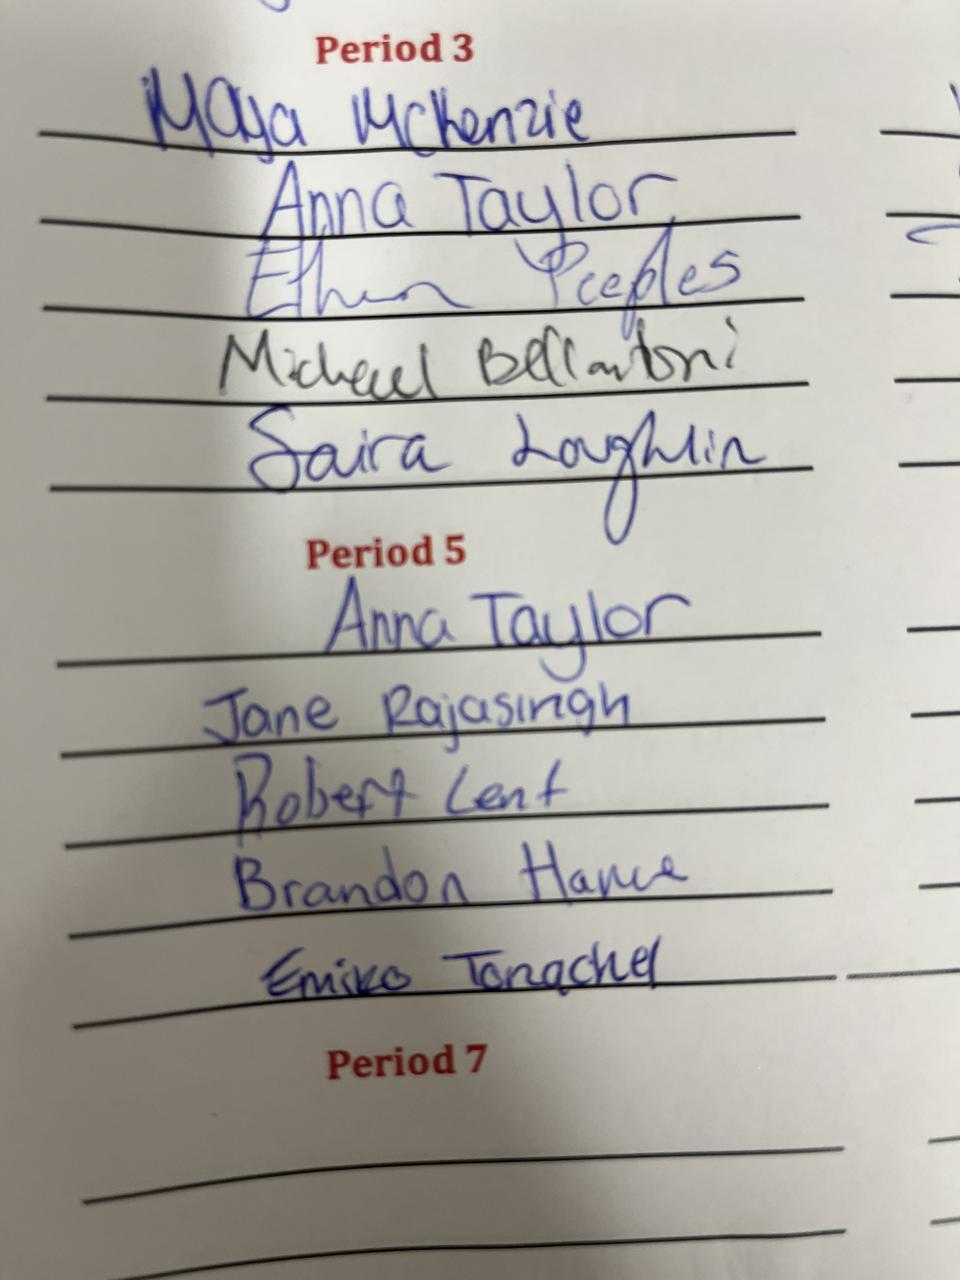 Period 3
Maya McKenzie
Anna Taylor
Ethan Peeples
Michael Bellantoni
Saira Loughlin
Period 5
Anna Taylor
Jane Rajasingh
Robert Lent
Brandon
Emiko
Period 7